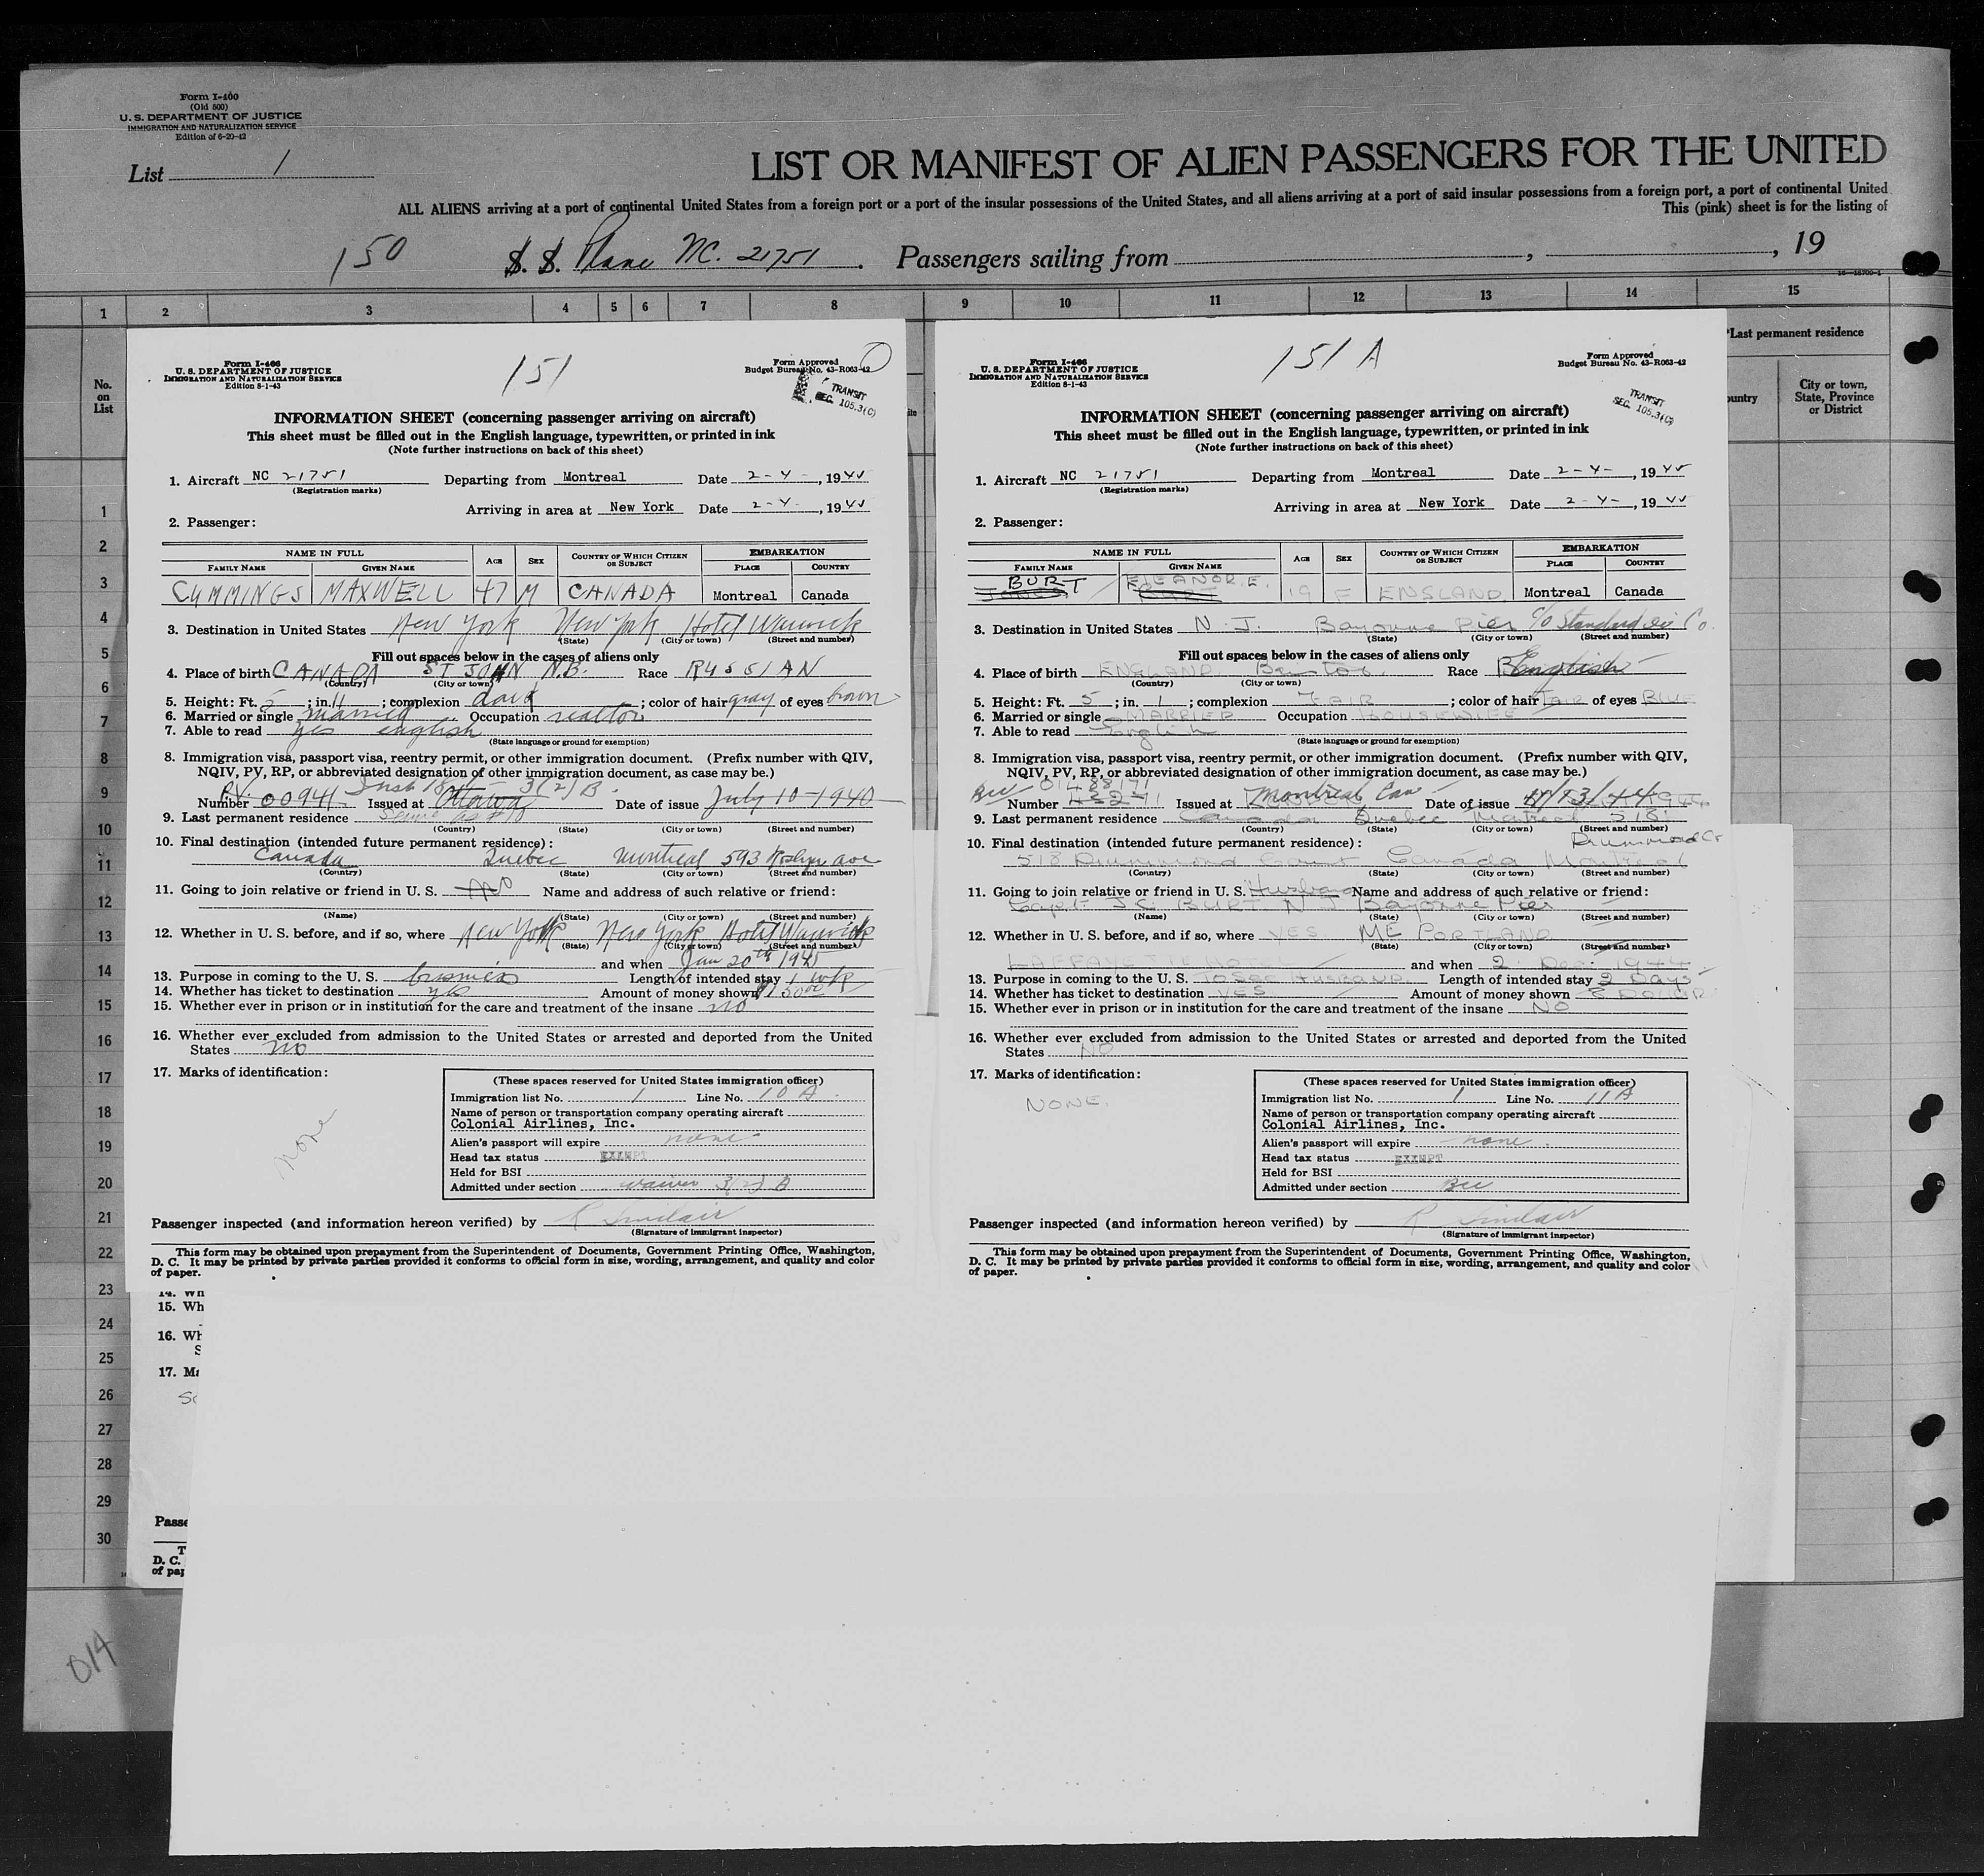 Form I-400
(Old 500)
U. S. DEPARTMENT OF JUSTICE
IMMIGRATION AND NATURALIZATION SERVICE
Edition of 6-20-42
List 1
LIST OR MANIFEST OF ALIEN PASSENGERS FOR THE UNITED
ALL ALIENS arriving at a port of continental United States from a foreign port or a port of the insular possessions of the United States, and all aliens arriving at a port of said insular possessions from a foreign port, a port of continental United
This (pink) sheet is for the listing of
150 S. S. Plane NC. 21751. Passengers sailing from , , 19
16—18700-1
1 2 3 4 5 6 7 8 9 10 11 12 13 14 15
No. on List
*Last permanent residence
City or town, State, Province or District
1
2
3
4
5
6
7
8
9
10
11
12
13
14
15
16
17
18
19
20
21
22
23
24
25
26
27
28
29
30
014
Form I-466
U. S. DEPARTMENT OF JUSTICE
IMMIGRATION AND NATURALIZATION SERVICE
Edition 8-1-43
151
Form Approved
Budget Bureau No. 43-R063-42
TRANSIT
SEC. 105.3(C)
INFORMATION SHEET (concerning passenger arriving on aircraft)
This sheet must be filled out in the English language, typewritten, or printed in ink
(Note further instructions on back of this sheet)
1. Aircraft NC 21751 Departing from Montreal Date 2-4-, 1945
(Registration marks)
Arriving in area at New York Date 2-4-, 1945
2. Passenger:
NAME IN FULL AGE SEX COUNTRY OF WHICH CITIZEN OR SUBJECT EMBARKATION
FAMILY NAME GIVEN NAME PLACE COUNTRY
CUMMINGS MAXWELL 47 M CANADA Montreal Canada
3. Destination in United States New York New York Hotel Warwick
(State) (City or town) (Street and number)
Fill out spaces below in the cases of aliens only
4. Place of birth CANADA ST JOHN N.B. Race RUSSIAN
(Country) (City or town)
5. Height: Ft. 5; in. 11; complexion dark; color of hair gray of eyes brown
6. Married or single married Occupation realtor
7. Able to read yes english
(State language or ground for exemption)
8. Immigration visa, passport visa, reentry permit, or other immigration document. (Prefix number with QIV,
NQIV, PV, RP, or abbreviated designation of other immigration document, as case may be.)
PV. 3(2) B.
Number 00941 Issued at Ottawa Date of issue July 10-1940
9. Last permanent residence Same as #10
(Country) (State) (City or town) (Street and number)
10. Final destination (intended future permanent residence):
Canada Quebec Montreal 593 Roslyn ave
(Country) (State) (City or town) (Street and number)
11. Going to join relative or friend in U. S. NO Name and address of such relative or friend:
(Name) (State) (City or town) (Street and number)
12. Whether in U. S. before, and if so, where New York New York Hotel Warwick
(State) (City or town) (Street and number)
and when Jan 20th 1945
13. Purpose in coming to the U. S. business Length of intended stay 1 wk
14. Whether has ticket to destination yes Amount of money shown
15. Whether ever in prison or in institution for the care and treatment of the insane no
16. Whether ever excluded from admission to the United States or arrested and deported from the United
States no
17. Marks of identification:
none
(These spaces reserved for United States immigration officer)
Immigration list No. 1 Line No. 10 A.
Name of person or transportation company operating aircraft
Colonial Airlines, Inc.
Alien's passport will expire none
Head tax status EXEMPT
Held for BSI
Admitted under section waiver 3(2) B
Passenger inspected (and information hereon verified) by R Sinclair
(Signature of immigrant inspector)
This form may be obtained upon prepayment from the Superintendent of Documents, Government Printing Office, Washington,
D. C. It may be printed by private parties provided it conforms to official form in size, wording, arrangement, and quality and color
of paper.
Form I-466
U. S. DEPARTMENT OF JUSTICE
IMMIGRATION AND NATURALIZATION SERVICE
Edition 8-1-43
151 A
Form Approved
Budget Bureau No. 43-R063-42
TRANSIT
SEC. 105.3(C)
INFORMATION SHEET (concerning passenger arriving on aircraft)
This sheet must be filled out in the English language, typewritten, or printed in ink
(Note further instructions on back of this sheet)
1. Aircraft NC 21751 Departing from Montreal Date 2-4-, 1945
(Registration marks)
Arriving in area at New York Date 2-4-, 1945
2. Passenger:
NAME IN FULL AGE SEX COUNTRY OF WHICH CITIZEN OR SUBJECT EMBARKATION
FAMILY NAME GIVEN NAME PLACE COUNTRY
BURT ELEANOR E. 19 F ENGLAND Montreal Canada
3. Destination in United States N. J. Bayonne Pier c/o Standard Oil Co.
(State) (City or town) (Street and number)
Fill out spaces below in the cases of aliens only
4. Place of birth ENGLAND Race English
(Country) (City or town)
5. Height: Ft. 5; in. 1; complexion FAIR; color of hair FAIR of eyes BLUE
6. Married or single MARRIED Occupation HOUSEWIFE
7. Able to read English
(State language or ground for exemption)
8. Immigration visa, passport visa, reentry permit, or other immigration document. (Prefix number with QIV,
NQIV, PV, RP, or abbreviated designation of other immigration document, as case may be.)
Number Issued at Montreal Can Date of issue
9. Last permanent residence Canada Quebec Montreal 518
(Country) (State) (City or town) (Street and number)
10. Final destination (intended future permanent residence): Drummond Ct
518 Drummond Court Canada Montreal
(Country) (State) (City or town) (Street and number)
11. Going to join relative or friend in U. S. Husband Name and address of such relative or friend:
Capt. J.C. BURT N J Bayonne Pier
(Name) (State) (City or town) (Street and number)
12. Whether in U. S. before, and if so, where YES ME PORTLAND
(State) (City or town) (Street and number)
LAFFAYETTE HOTEL and when 2. Dec. 1944.
13. Purpose in coming to the U. S. TO SEE HUSBAND Length of intended stay 2 Days
14. Whether has ticket to destination YES Amount of money shown 8 Dollar
15. Whether ever in prison or in institution for the care and treatment of the insane NO
16. Whether ever excluded from admission to the United States or arrested and deported from the United
States NO
17. Marks of identification:
NONE.
(These spaces reserved for United States immigration officer)
Immigration list No. 1 Line No. 11 A
Name of person or transportation company operating aircraft
Colonial Airlines, Inc.
Alien's passport will expire none
Head tax status EXEMPT
Held for BSI
Admitted under section
Passenger inspected (and information hereon verified) by R Sinclair
(Signature of immigrant inspector)
This form may be obtained upon prepayment from the Superintendent of Documents, Government Printing Office, Washington,
D. C. It may be printed by private parties provided it conforms to official form in size, wording, arrangement, and quality and color
of paper.
15. Wh
16. Wh
S
17. Ma
Passe
T
D. C.
of pap